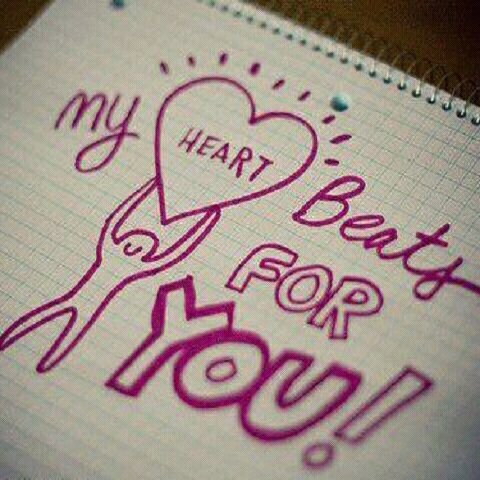 my HEART Beats
FOR
YOU!